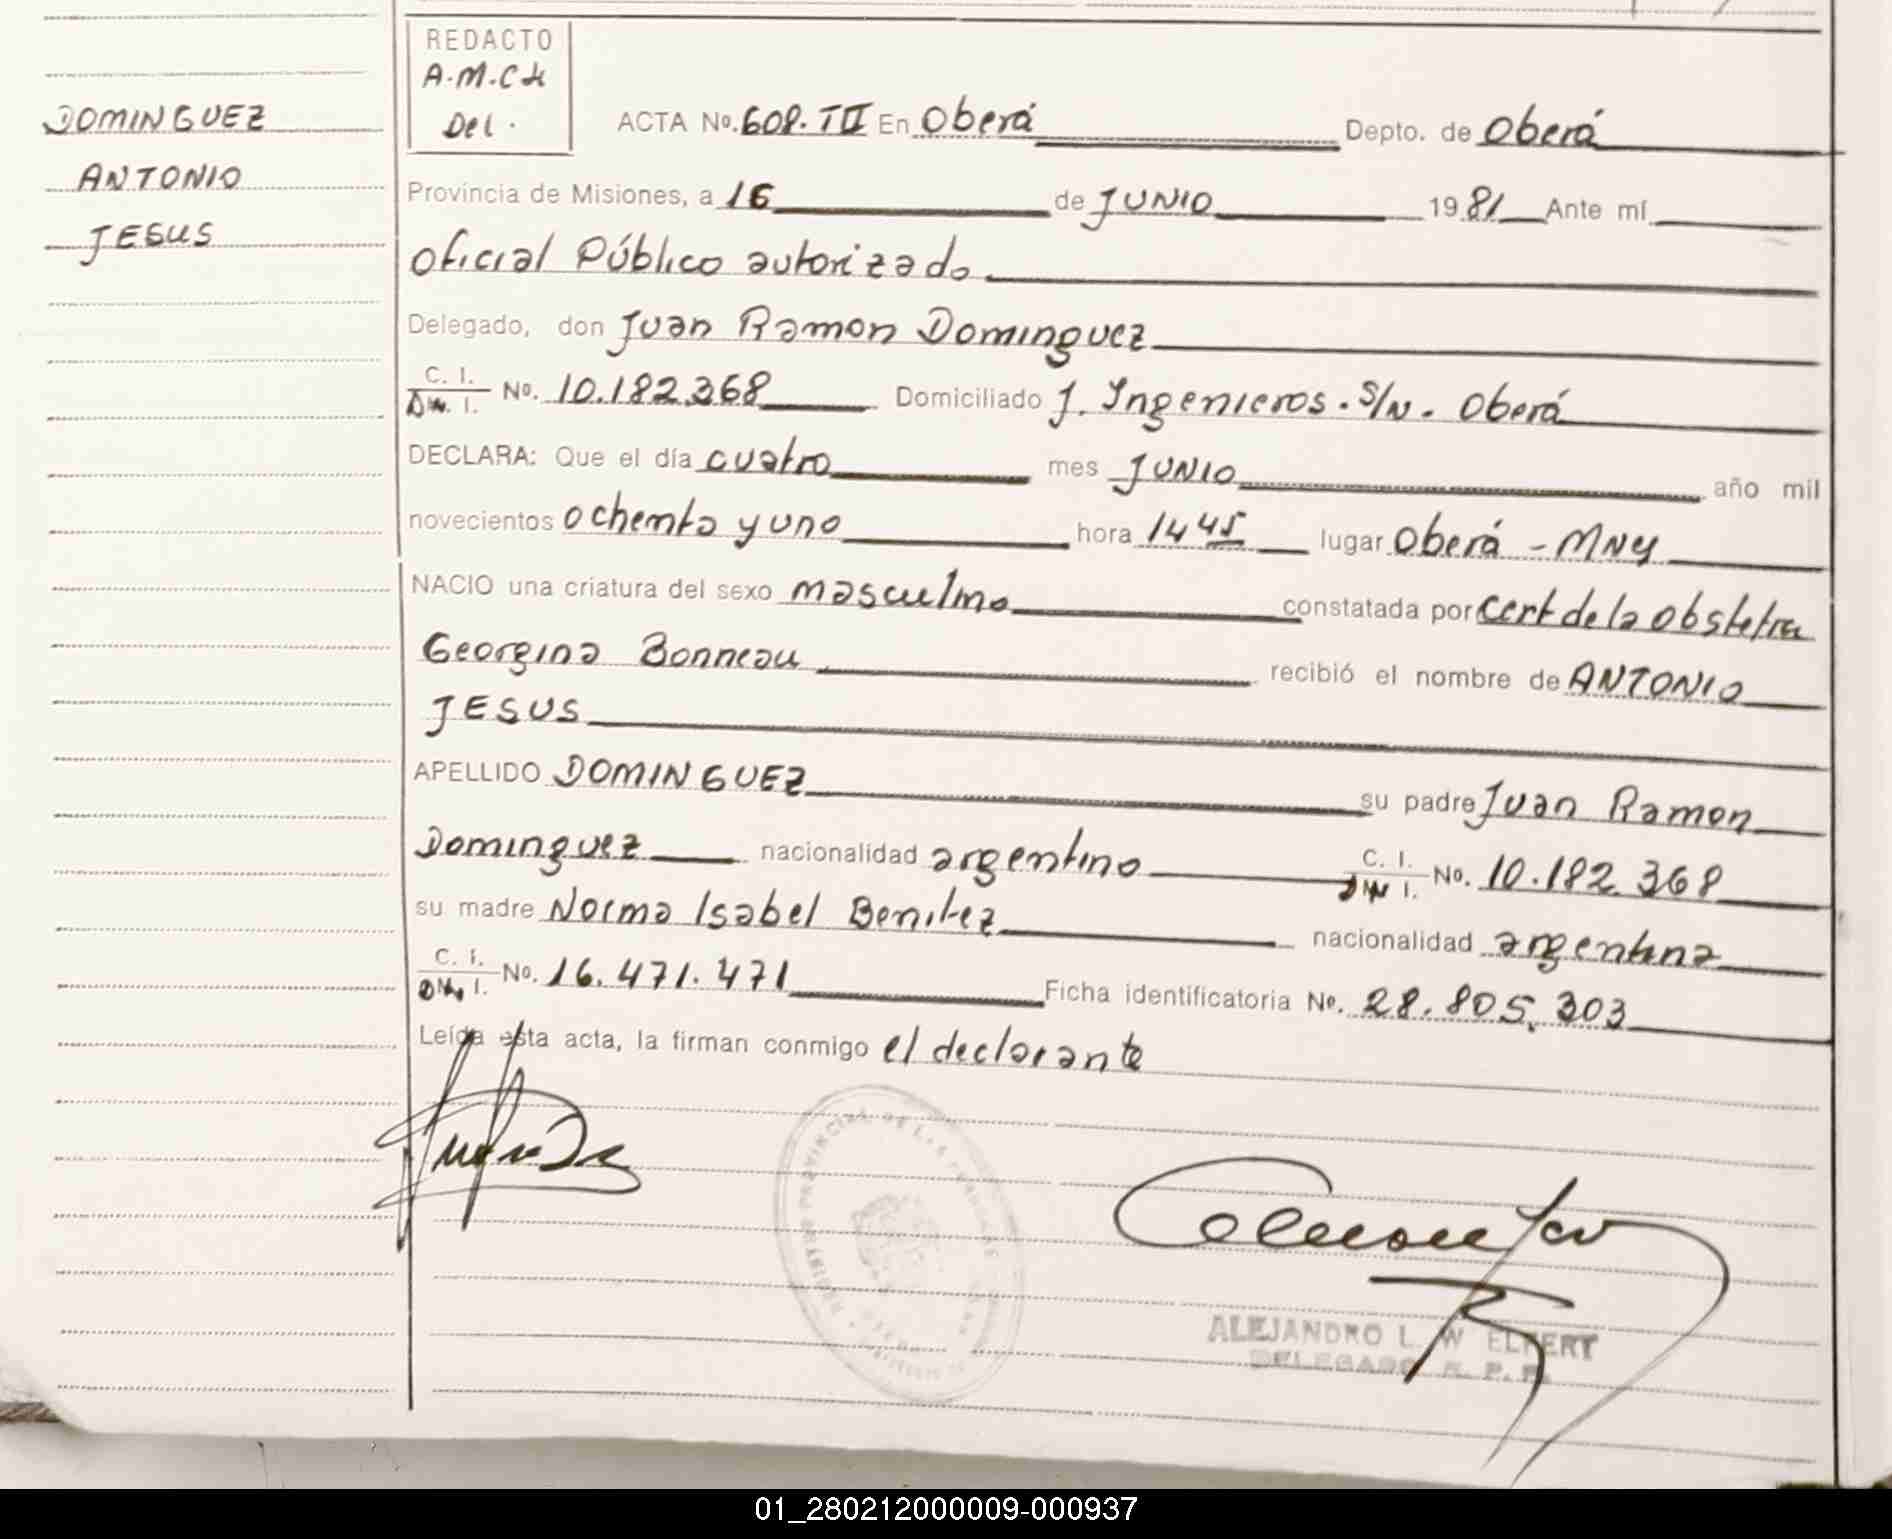 DOMINGUEZ
ANTONIO
JESUS
REDACTO
A.M.CH
Del.
ACTA No. 608. TIII En Oberá Depto. de Oberá
Provincia de Misiones, a 16 de JUNIO 1981 Ante mí
Oficial Público autorizado
Delegado, don Juan Ramon Dominguez
C. I. D.N. I. No. 10.182.368 Domiciliado J. Ingenieros. S/N. Oberá
DECLARA: Que el día cuatro mes JUNIO año mil
novecientos ochenta y uno hora 14 45 lugar Oberá - MNES
NACIO una criatura del sexo masculino constatada por cert de la obstetra
Georgina Bonneau recibió el nombre de ANTONIO
JESUS
APELLIDO DOMINGUEZ su padre Juan Ramon
Dominguez nacionalidad argentino C. I. D.N. I. No. 10.182.368
su madre Norma Isabel Benitez nacionalidad argentina
C. I. D.N. I. No. 16.471.471 Ficha identificatoria No. 28.805.303
Leída esta acta, la firman conmigo el declarante
REGISTRO PROVINCIAL DE LAS PERSONAS
ALEJANDRO L. W ELFERT
DELEGADO R. P. P.
01_280212000009-000937